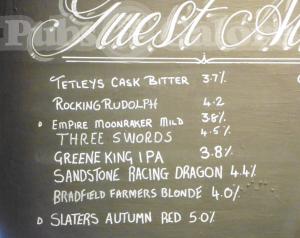 Guest Al
TETLEYS CASK BITTER 3.7%
ROCKING RUDOLPH 4.2
EMPIRE MOONRAKER MILD 3.8%
THREE SWORDS 4.5%
GREENE KING IPA 3.8%
SANDSTONE RACING DRAGON 4.4%
BRADFIELD FARMERS BLONDE 4.0%
SLATERS AUTUMN RED 5.0%